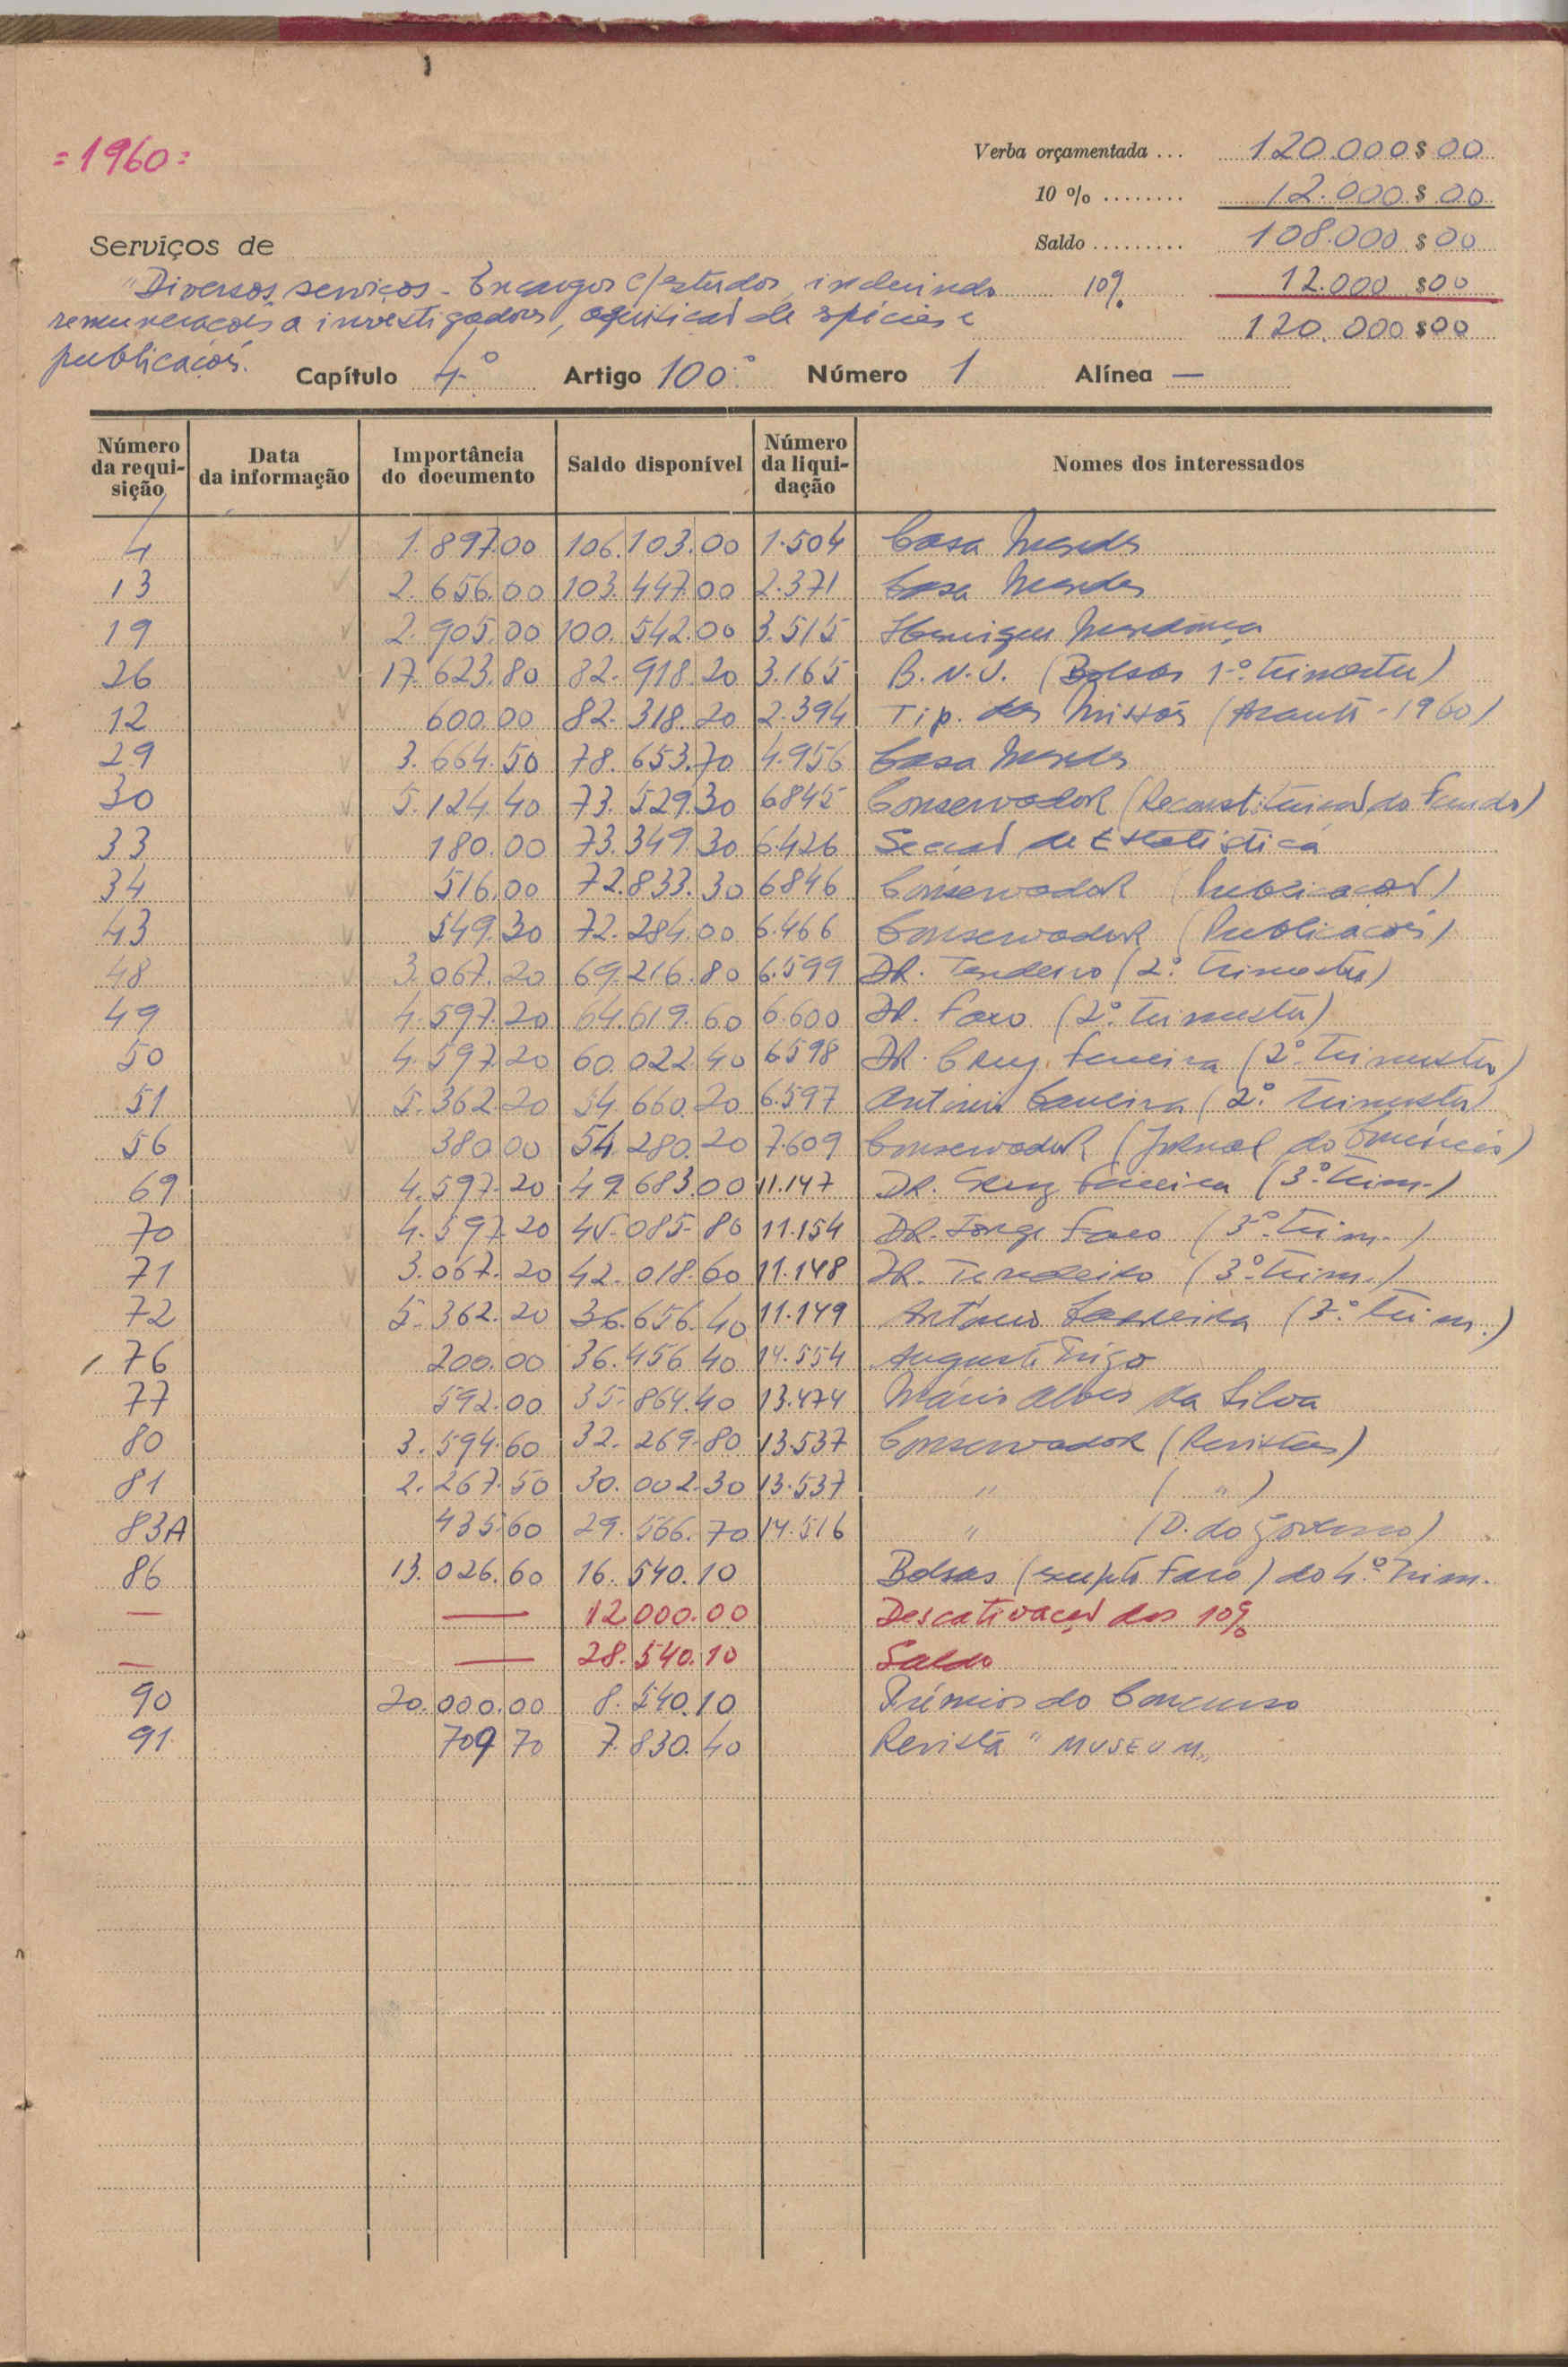 =1960=
Verba orçamentada ... 120.000$00
10 % ........ 12.000$00
Serviços de
Saldo ......... 108.000$00
"Diversos serviços - Encargos c/ estudos, incluindo 10% 12.000$00
remunerações a investigadores, aquisição de espécies e 120.000$00
publicações.
Capítulo 4º Artigo 100º Número 1 Alínea —
Número da requisição Data da informação Importância do documento Saldo disponível Número da liquidação Nomes dos interessados
4 1.897.00 106.103.00 1.504 Casa Mendes
13 2.656.00 103.447.00 2.371 Casa Mendes
19 2.905.00 100.542.00 3.515 Henrique Mendonça
26 17.623.80 82.918.20 3.165 B.N.U. (Bolsas 1.º trimestre)
12 600.00 82.318.20 2.394 Tip. das Missões (1960)
29 3.664.50 78.653.70 4.956 Casa Mendes
30 5.124.40 73.529.30 6845 Conservador (Reconstituição do Fundo)
33 180.00 73.349.30 6.426 Secção de Estatística
34 516.00 72.833.30 6846 Conservador (Publicações)
43 549.30 72.284.00 6.466 Conservador (Publicações)
48 3.067.20 69.216.80 6.599 DR. Tendeiro (2.º trimestre)
49 4.597.20 64.619.60 6.600 DR. Faro (2.º trimestre)
50 4.597.20 60.022.40 6598 DR. Cruz Ferreira (2.º trimestre)
51 5.362.20 54.660.20 6.597 António Carreira (2.º trimestre)
56 380.00 54.280.20 7.609 Conservador (Jornal do Comércio)
69 4.597.20 49.683.00 11.147 DR. Cruz Ferreira (3.º trim.)
70 4.597.20 45.085.80 11.154 DR. Jorge Faro (3.º trim.)
71 3.067.20 42.018.60 11.148 DR. Tendeiro (3.º trim.)
72 5.362.20 36.656.40 11.149 António Carreira (3.º trim.)
76 200.00 36.456.40 14.554 Augusto Trigo
77 592.00 35.864.40 13.474 Mário Alves da Silva
80 3.594.60 32.269.80 13.537 Conservador (Revistas)
81 2.267.50 30.002.30 13.537 " ( " )
83A 435.60 29.566.70 14.516 " (D. do Governo)
86 13.026.60 16.540.10 Bolsas (excepto Faro) do 4.º trim.
— — 12.000.00 Descativação dos 10%
— — 28.540.10 Saldo
90 20.000.00 8.540.10 Prémios do Concurso
91 709.70 7.830.40 Revista "MUSEUM"